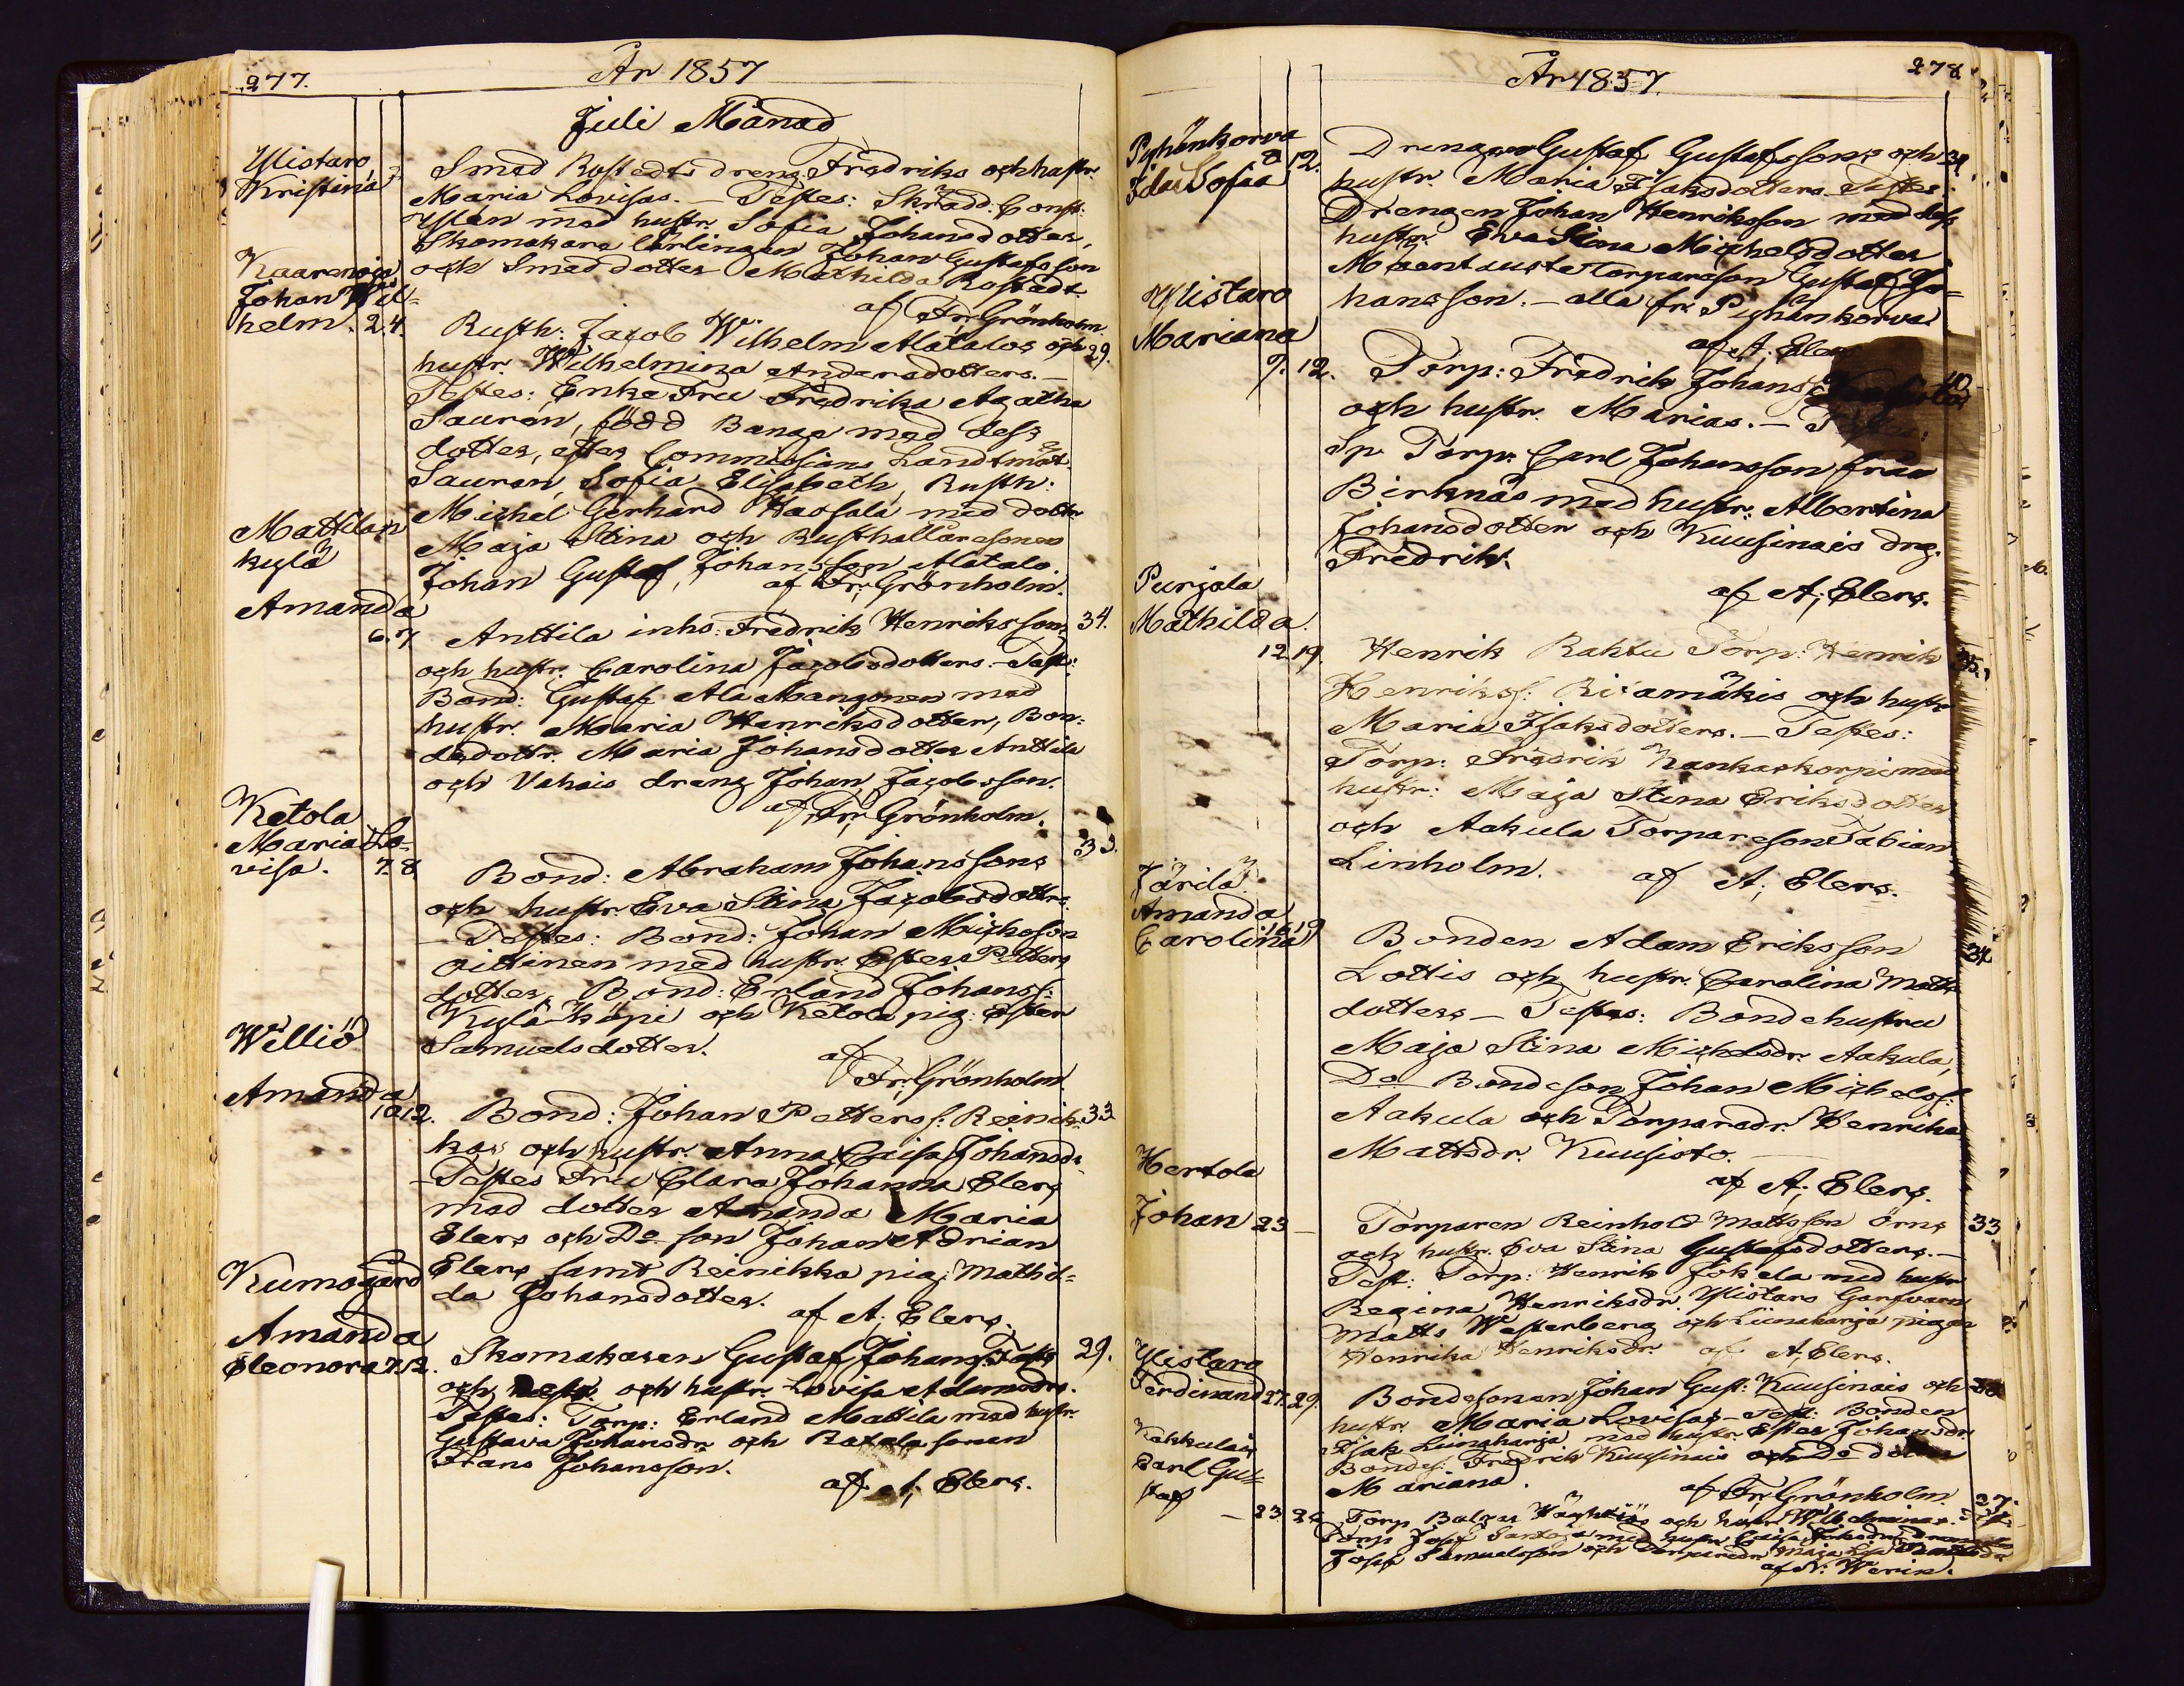 277.
År 1857
Juli Månad
Ylistaro
Kristina
Smed Rostedts dreng Fredriks och hustr.
Maria Lovisas. — Testes: Skrädd: Const:
Yslen med hustr. Sofia Johansdotter,
Skomakare lärlingen Johan Gustafsson
och Smeddotter Mathilda Rostedt.
af Fr: Grönholm
Kaarenoja
Johan Wil=
helm. 2.4.
Rusth: Jacob Wilhelm Alatalos och 29.
hustr. Wilhelmina Andersdotters. —
Testes: Enke Fru Fredrika Agatha
Sauren, född Bange med dess
dotter, efter Commissions Landtmät.
Sauren, Sofia Elisabeth, Rusth:
Michel Gerhard Hassala med dottr
Maja Stina och Rusthållaresonen
Johan Gustaf Johansson Alatalo.
af Fr: Grönholm.
Mattilan
kylä
Amanda
6.7
Anttila inhs: Fredrik Henrikssons 34.
och hustr. Carolina Jacobsdotters. — Test:
Bond: Gustaf Ali Mangonen med
hustr. Maria Henriksdotter, Bon=
dedottr. Maria Johansdotter Anttila
och Vahais dreng Johan Jacobsson.
af Fr: Grönholm.
Ketola
Maria Lo=
visa. 7.8.
Bond: Abraham Johanssons
och hustr. Eva Stina Jacobsdottrs.
— Testes: Bond: Johan Michelsson
Oittinen med hustr. Ester Petters
dotter, Bond: Erland Johanss:
Kylä-Käpi och Ketola pig: Ester
Samuelsdotter.
af
Fr: Grönholm
Williö
Amanda
10.12.
Bond: Johan Petterss: Reinik- 33
kas och hustr. Anna Caisa Johansds.
— Testes Fru Clara Johanna Elers
med dotter Amanda Maria
Elers och Do son Johan Adrian
Elers samt Reinikka pig: Mathil=
da Johansdotter.
af A: Elers.
Kumogård
Amanda
Eleonora 7.12.
Skomakaren Gustaf Johans: 29.
och och hustr. Lovisa Adamsdrs.
Testes: Torp: Erland Mattila med hustr.
Gustava Johansdr och Ratala sonen
Frans Johansson.
af A: Elers.
År 1857.
278.
Pyhänkorva
Ida Sofia 12.
Drengen Gustaf Gustafssons och
hustr. Maria Isaksdotters. Testes:
Drengen Johan Henriksson med dess
hustr. Eva Stina Michelsdotter
Torparesson Gustaf Jo=
hansson. — alla fr. Pyhänkorva
af A: Elers
Ylistaro
Mariana
9. 12.
Torp: Fredrik Johans: 40
och hustr. Marias. —
Sp. Torp: Carl Johansson från
Birknäs med hustr: Albertina
Johansdotter och Kuusinais drg.
Fredrik.
af A; Elers.
Purjala
Mathilda.
12 19.
Henrik Rahtu Torp: Henrik 35.
Henrikss: Riiamäkis och hustr
Maria Isaksdotters. — Testes:
Torp: Fredrik Kankaskorpi med
hustr: Maja Stina Eriksdotter
och Aakula Torpareson Fabian
Linholm.
af A; Elers.
Järilä
Amanda
Carolina 16 19
Bonden Adam Eriksson 34
Lottis och hustr. Carolina Matts
dotters — Testes: Bondehustru
Maja Stina Michelsdr Aakula,
Do Bondeson Johan Michelss:
Aakula och Torparedr. Henrika
Mattsdr. Kuusisto. —
af A; Elers.
Hertola
Johan 23 —
Torparen Reinhold Mattsson Örns 33
och hustr. Eva Stina Gustafsdotters. —
Test: Torp: Henrik Jokela med hustr
Regina Henriksdr. Ylistaro Garfvaren
Matts Westerberg och Liinaharja pigan
Henrika Henriksdr. af A; Elers.
Ylistaro
Ferdinand 27. 29.
Bondesonen Johan Gust: Kuusinais och
hustr. Maria Lovisas. — Test: Bonden
Isak Liinaharja med hustr. Ester Johansdr.
Bondes: Fredrik Kuusinais och Do dotter
Mariana.
af Fr: Grönholm
Kakkulais
Carl Gu=
staf
— 23. 26
Torp Wilhelminas. 27.
Torp Josef Santoja med hustr. Caisa
Josef Samuelsson och Torparedr Maja Lisa
af N: Werin.